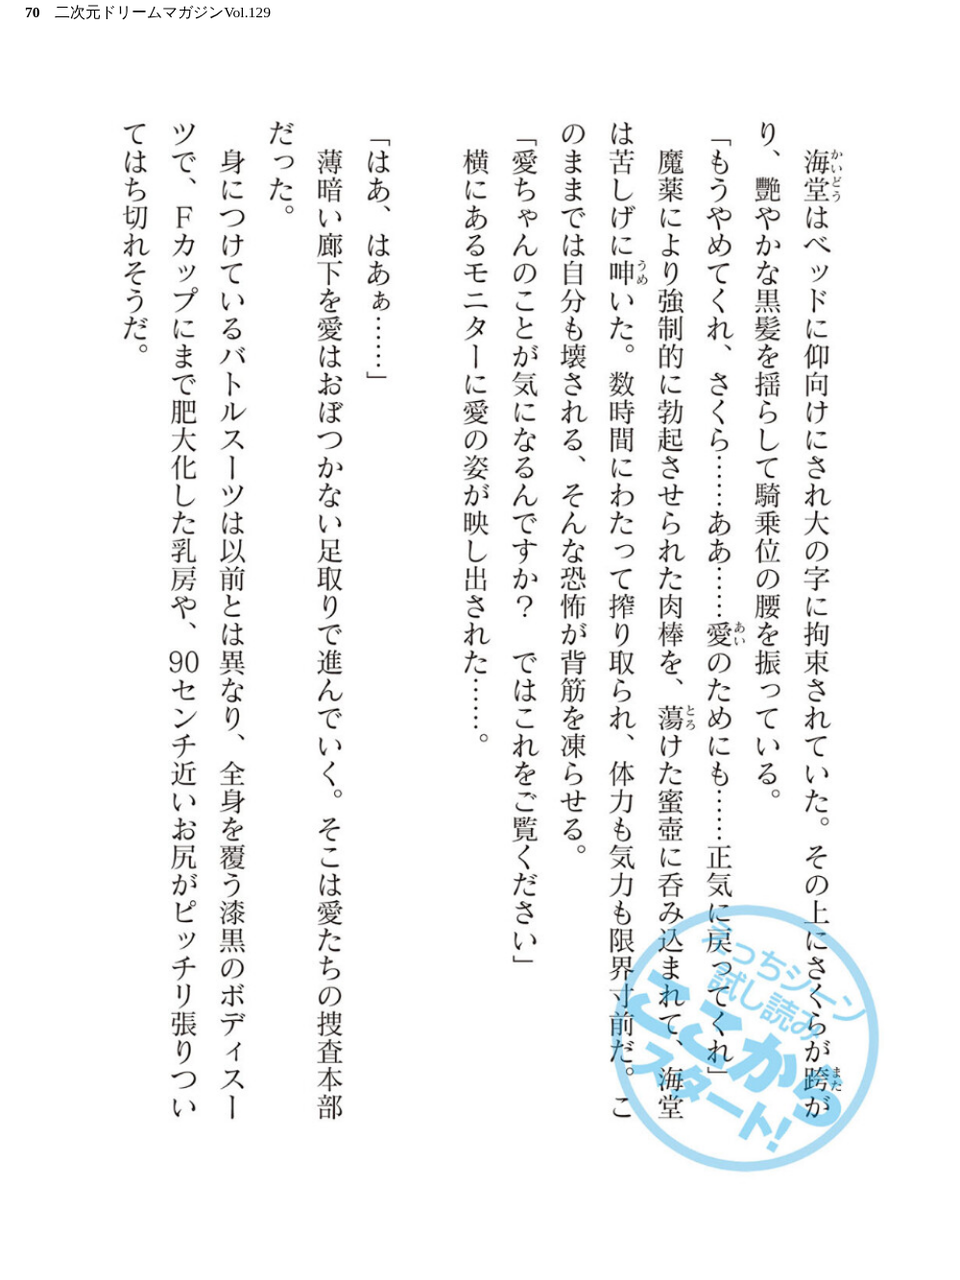 70 二次元ドリームマガジンVol.129
海堂はベッドに仰向けにされ大の字に拘束されていた。その上にさくらが跨が
り、艶やかな黒髪を揺らして騎乗位の腰を振っている。
「もうやめてくれ、さくら……ああ……愛のためにも……正気に戻ってくれ」
魔薬により強制的に勃起させられた肉棒を、蕩けた蜜壺に呑み込まれて、海堂
は苦しげに呻いた。数時間にわたって搾り取られ、体力も気力も限界寸前だ。こ
のままでは自分も壊される、そんな恐怖が背筋を凍らせる。
「愛ちゃんのことが気になるんですか？　ではこれをご覧ください」
横にあるモニターに愛の姿が映し出された……。
「はあ、はあぁ……」
薄暗い廊下を愛はおぼつかない足取りで進んでいく。そこは愛たちの捜査本部
だった。
身につけているバトルスーツは以前とは異なり、全身を覆う漆黒のボディスー
ツで、Ｆカップにまで肥大化した乳房や、90センチ近いお尻がピッチリ張りつい
てはち切れそうだ。
えっちシーン
試し読み
ここから
スタート!